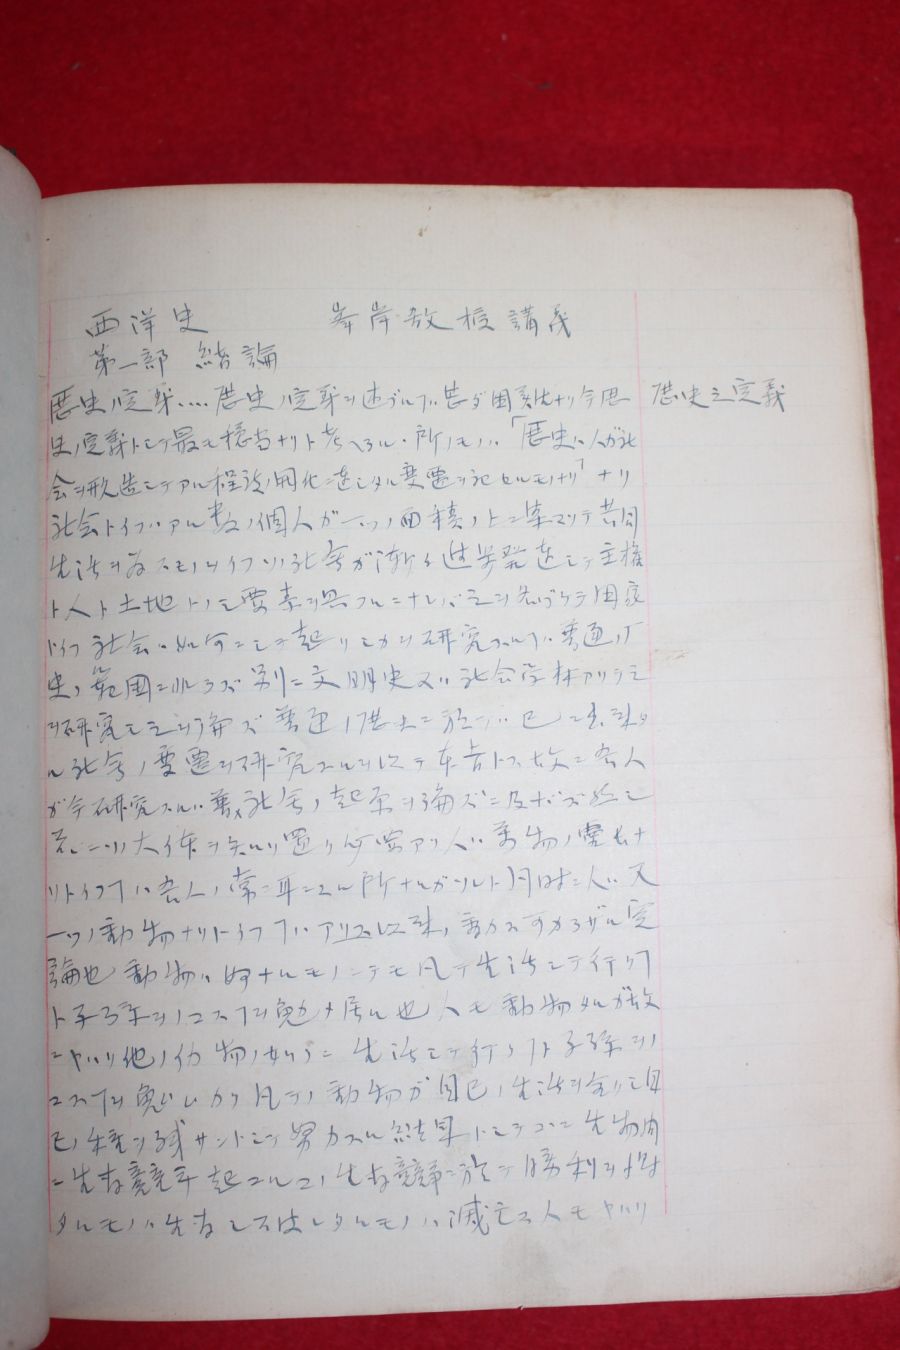 西洋史 峯岸教授講義
第一部 緒論
歴史ノ定義‥‥歴史ノ定義ヲ述ブルヿハ甚ダ困難ナリ今歴 歴史之定義
史ノ定義トシテ最モ穏当ナリト考ヘラル、所ノモノハ「歴史ハ人ガ社
会ヲ形造シテアル程度ノ開化ニ達シタル変遷ヲ記セルモノナリ」ナリ
社会トイフハアル数ノ個人ガ一ツノ面積ノ上ニ集マリテ共同
生活ヲ為スモノヲイフソノ社会ガ漸々進歩発達シテ主権
ト人ト土地トノ三要素ヲ具フルニナレバ之ヲ名ヅケテ国家
トイフ社会ハ如何ニシテ起リシカヲ研究スルヿハ普通ノ歴
史ノ範囲ニ非ラズ別ニ文明史又ハ社会学科アリテ之
ヲ研究シ之ヲ論ズ普通ノ歴史ニ於テハ已ニ出来タ
ル社会ノ変遷ヲ研究スルヲ以テ本旨トス故ニ吾人
ガ今研究スルハ社会ノ起原ヲ論ズニ及ボズ然シ
大体ヲ知リ置ク必要アリ人ハ万物ノ霊長ナ
リトイフヿハ吾人ノ常ニ耳ニスル所ナルガソレト同時ニ人ハ又
一ツノ動物ナリトイフヿハアリス以来ノ動カスベカラザル定
論也 動物ハ如何ナルモノニテモ凡テ生活シテ行クヿ
ト子孫ヲノコスヿヲ勉メ居ル也 人モ動物ナルガ故
ニヤハリ他ノ動物ノ如クニ生活シテ行クヿト子孫ヲノ
コスヿヲ勉ム シカク凡テノ動物ガ自己ノ生活ヲ全クシ自
己ノ種ヲ残サントシテ努力スル結果トシテココニ生物間
ニ生存競争起コルコノ生存競争ニ於テ勝利ヲ得
タルモノハ生存シ失敗シタルモノハ滅亡ス人モヤハリ